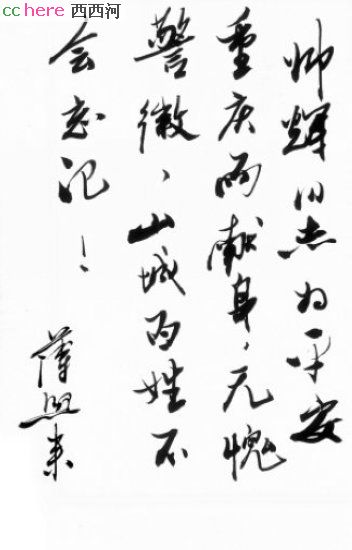 cchere 西西河
帅辉同志为平安
重庆而献身，无愧
警徽、山城百姓不
会忘记！
薄熙来